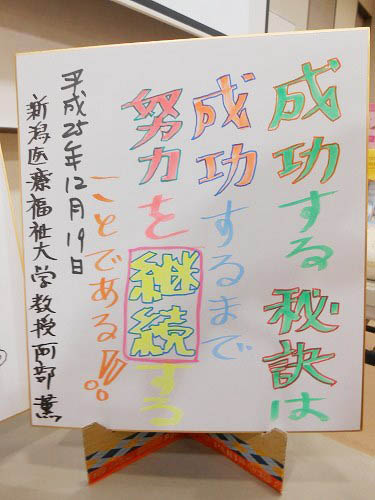 成功する秘訣は
成功するまで
努力を継続する
ことである!!!
平成25年12月19日
新潟医療福祉大学教授阿部薫